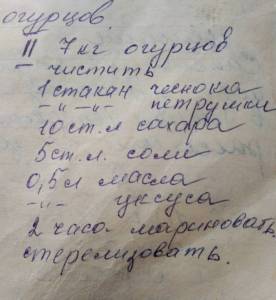 огурцов
II 7 кг огурцов
чистить
1 стакан чеснока
-"- -"- петрушки
10 ст.л сахара
5 ст.л. соли
0,5 л масла
-"- уксуса
2 часа мариновать.
стерелизовать.